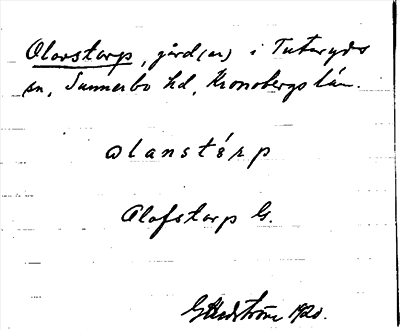 Olovstorp, gård(ar) i Tutaryds
sn, Sunnerbo hd, Kronobergs län.
ωlanstórp
Olofstorp G.
G Hedström 1920.